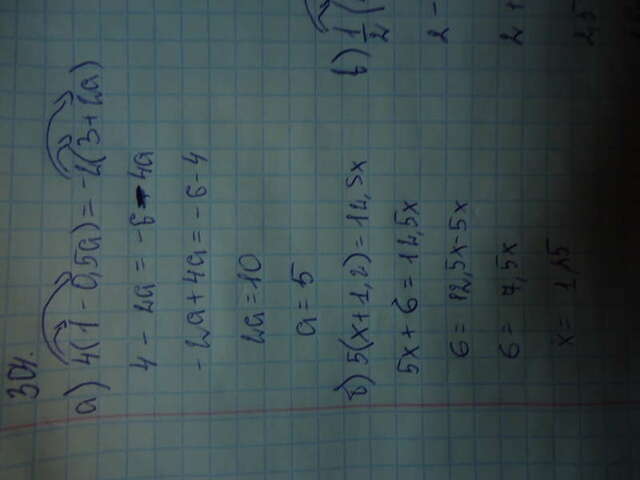 304.
а) 4(1 - 0,5a) = -2(3+2a)
4 - 2a = -6 - 4a
-2a + 4a = -6 - 4
2a = 10
a = 5
б) 5(x+1,2) = 12,5x
5x + 6 = 12,5x
6 = 12,5x - 5x
6 = 7,5x
x = 1,25
в) 1/2(
2 -
2 +
2,5